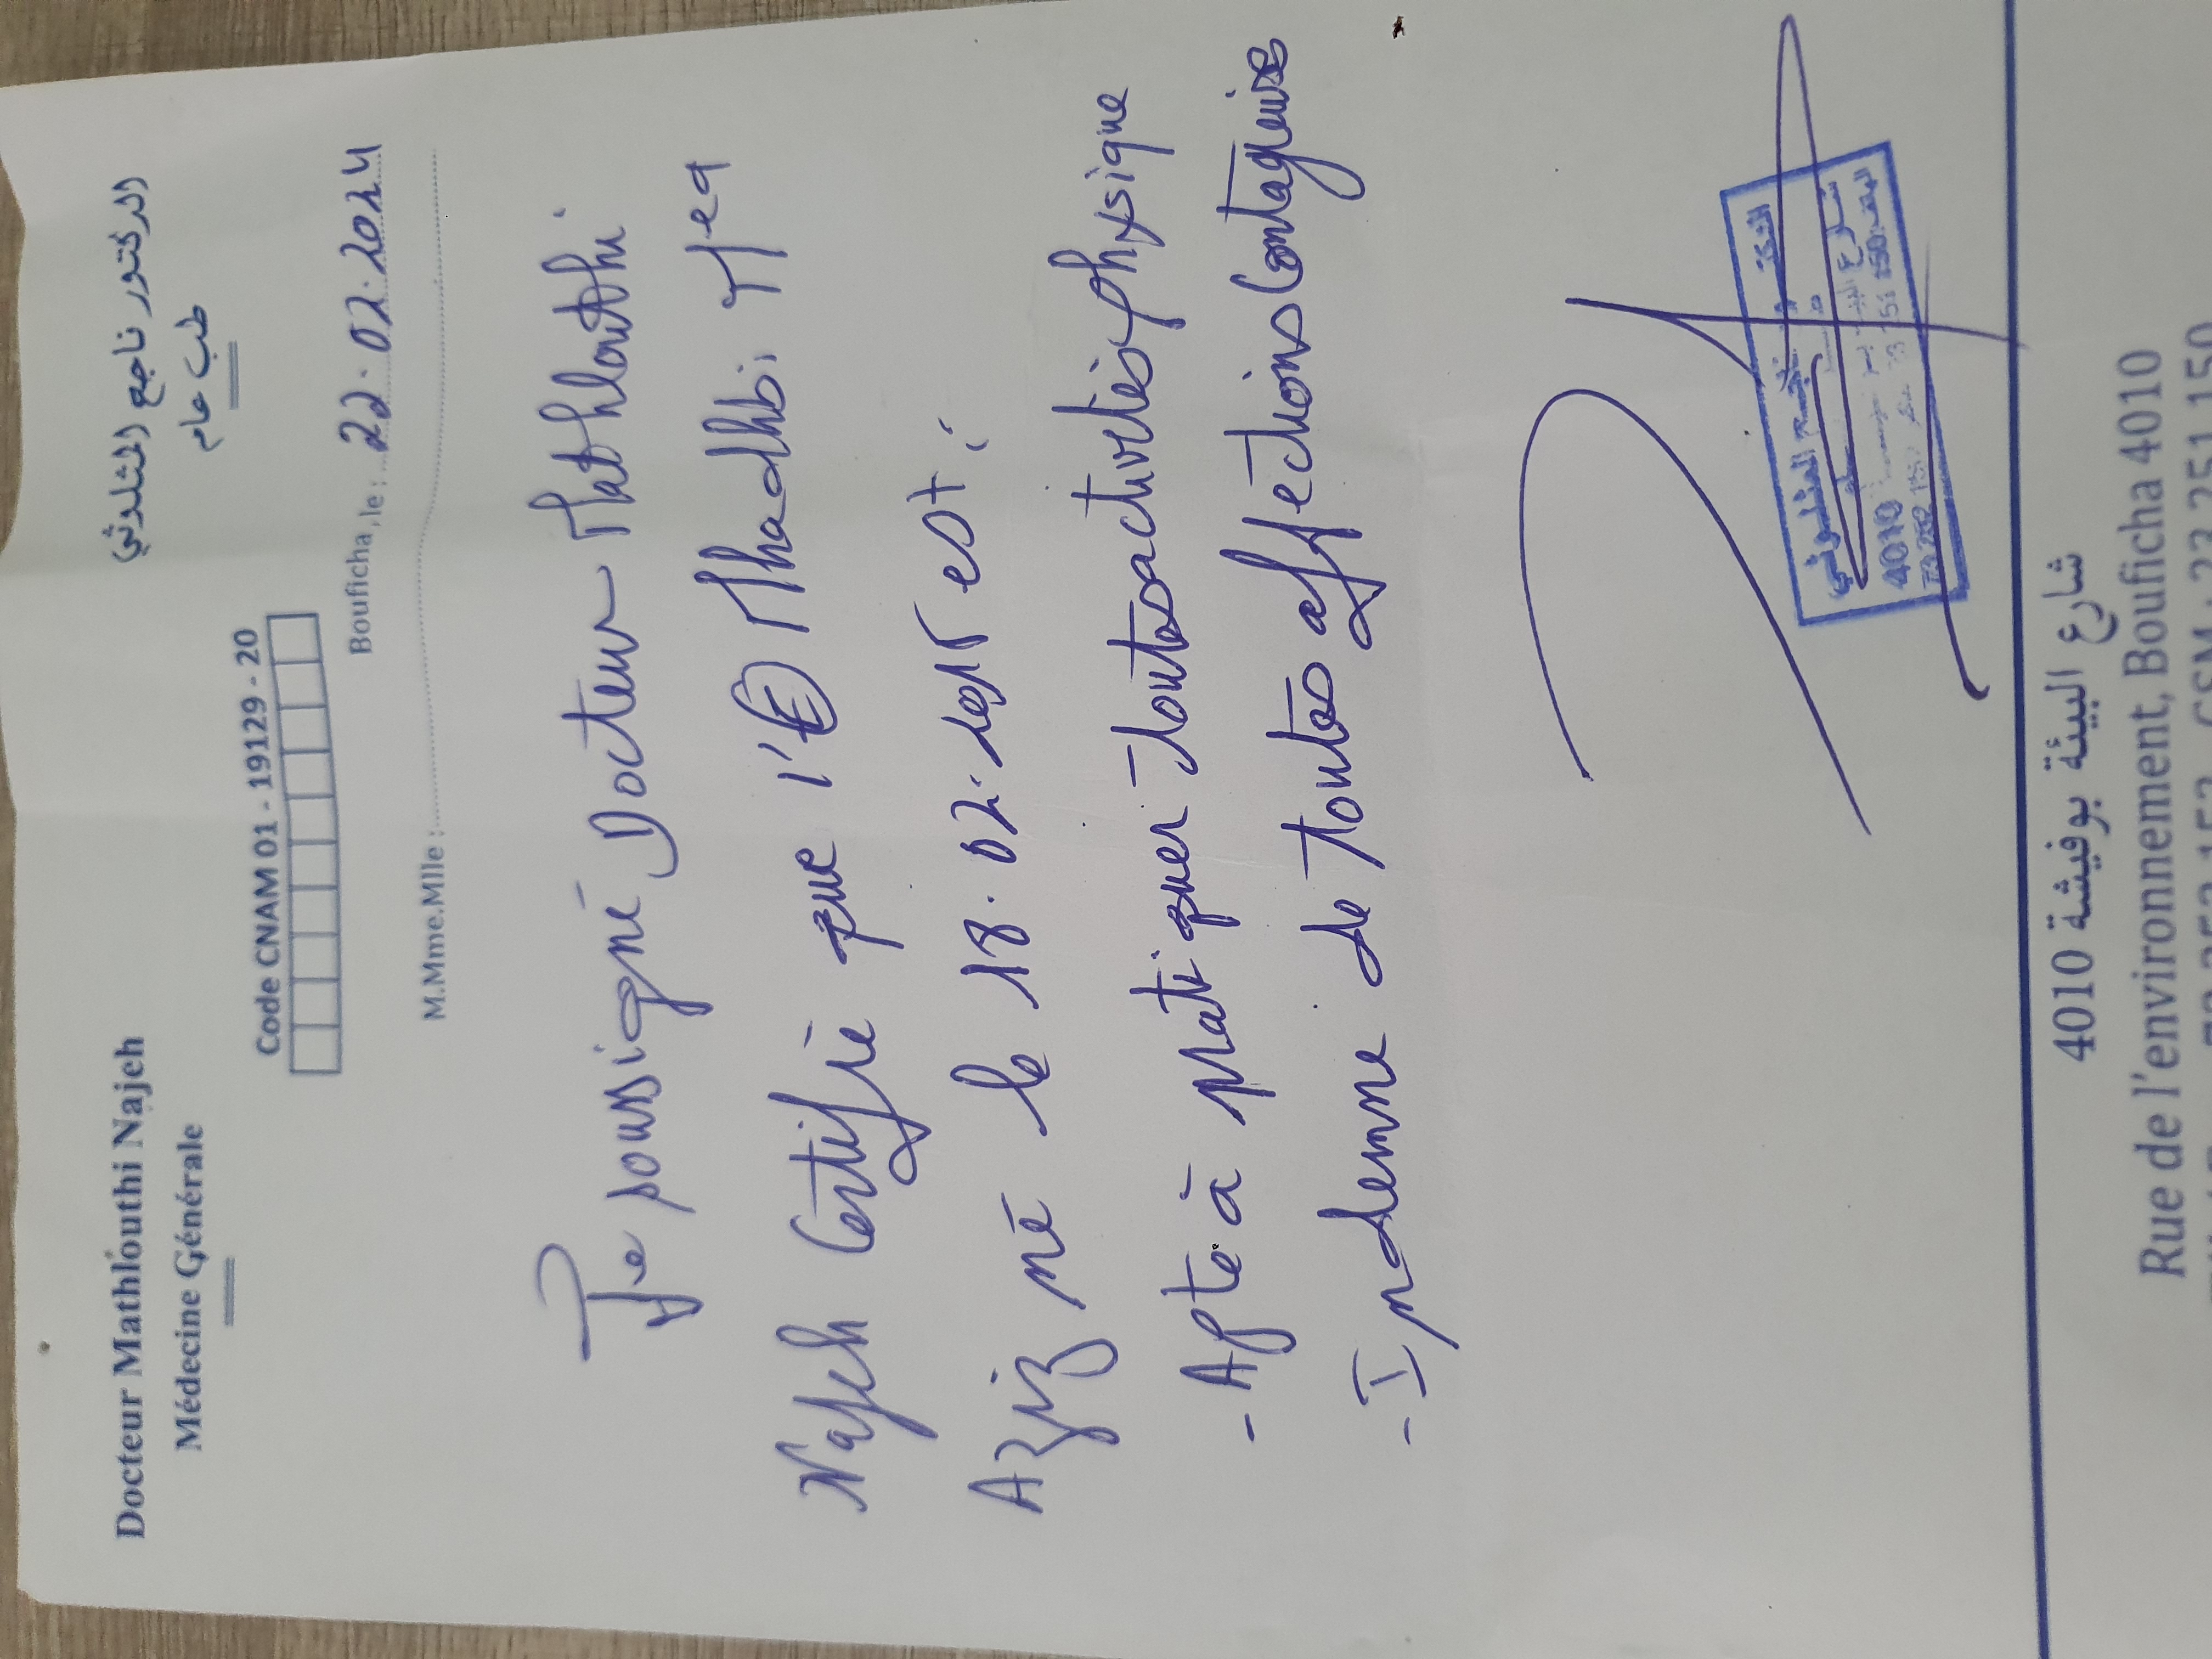 Docteur Mathlouthi Najeh
Médecine Générale
الدكتور ناجح المثلوثي
طب عام
Code CNAM 01 - 19129 - 20
Bouficha, le : 22.02.2024
M.Mme.Mlle :
Je soussigné Docteur Mathlouthi
Najeh Certifie que l'(E) Mhadhbi
Aziz né le 18.02. est :
- Apte à pratiquer toutes activités physique
- Indemne de toutes affections Contagieuses
المثلوثي
4010
شارع البيئة بوفيشة 4010
Rue de l'environnement, Bouficha 4010